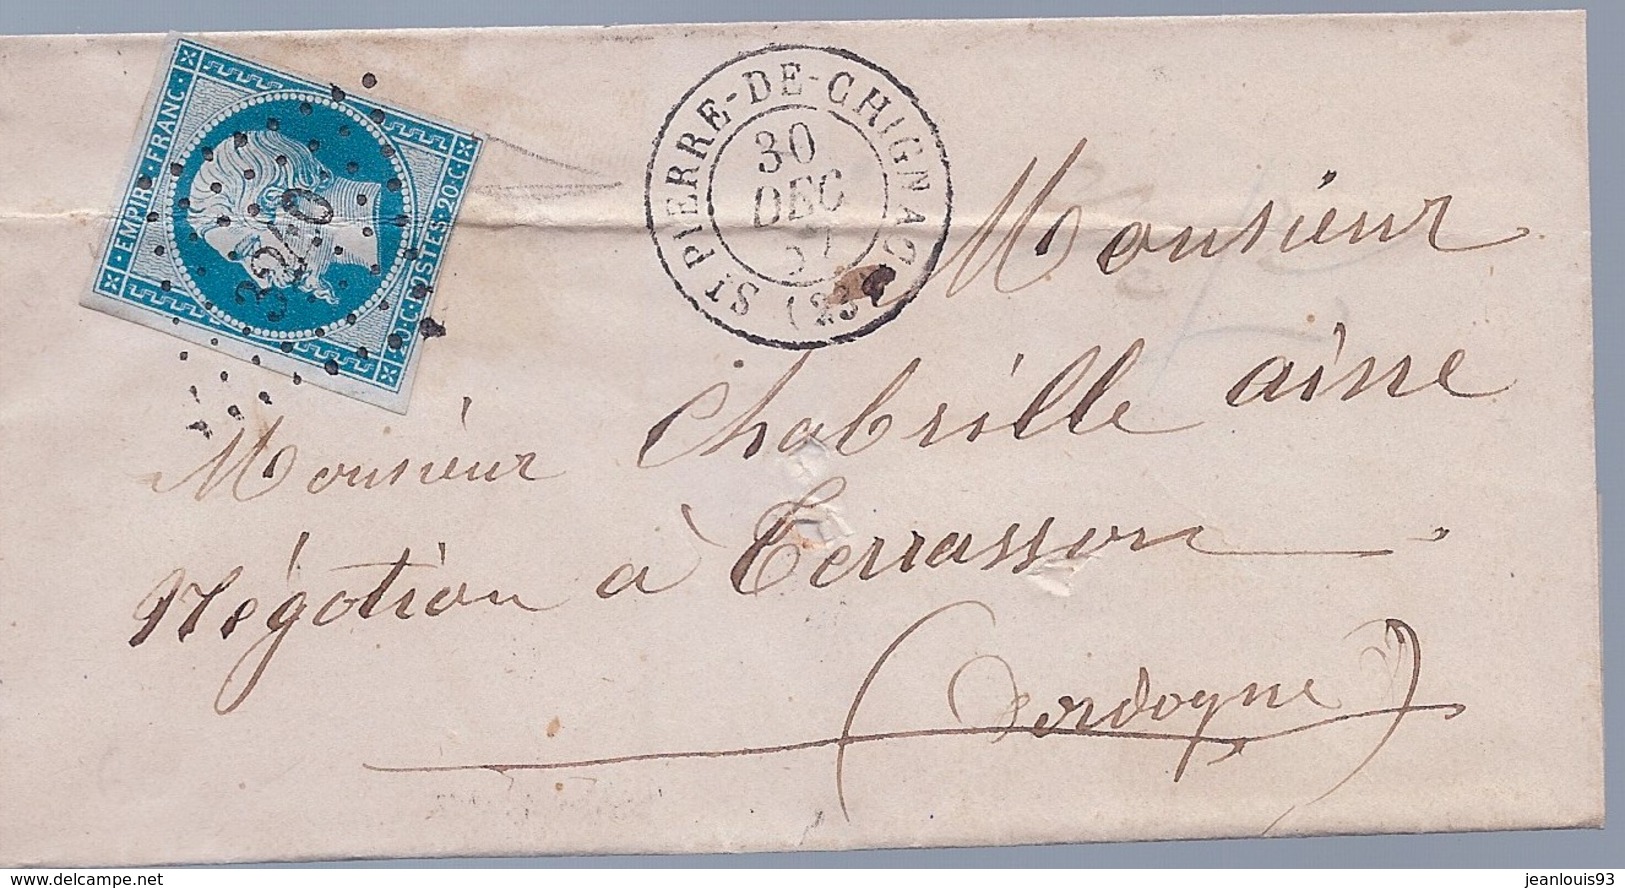 EMPIR · FRANC ·
20 · C · POSTES · 20 · C ·
3240
ST PIERRE-DE-CHIGNAC (23)
30
DEC
57
Monsieur
Monsieur Chabrille aîne
Négotian à Terrasson
(Dordogne)
www.delcampe.net
jeanlouis93